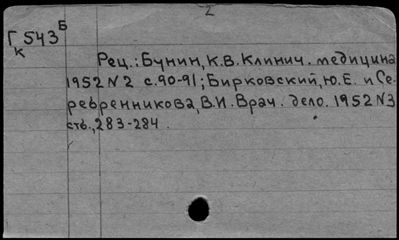 2
Г543 Б
К
Рец.: Бунин, К.В. Клинич. медицина
1952 N2 с.90-91; Бирковский, Ю.Е. и Се-
ребренникова, В.И. Врач. дело. 1952 N3
стб., 283-284.